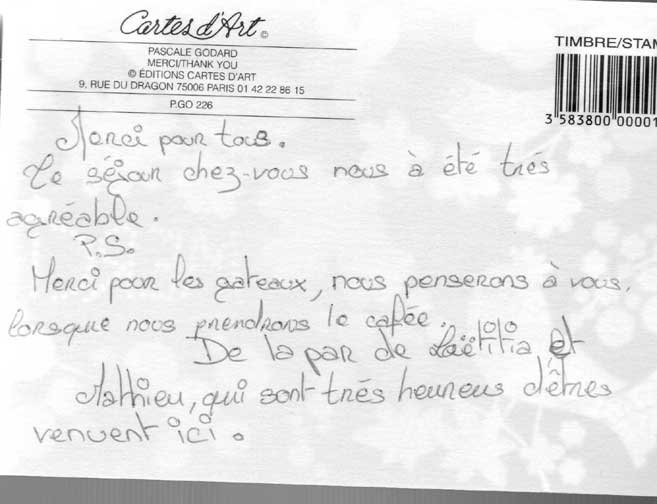 Cartes d'Art ©
PASCALE GODARD
MERCI/THANK YOU
© ÉDITIONS CARTES D'ART
9, RUE DU DRAGON 75006 PARIS 01 42 22 86 15
P.GO 226
TIMBRE/STAM
3 583800 00001
Merci pour tous.
Le séjour chez-vous nous à été trés
agréable.
P.S.
Merci pour les gateaux, nous penserons à vous,
lorsque nous prendrons le cafée.
De la par de Laëtitia et
Mathieu, qui sont trés heureus d'êtres
venuent ici.